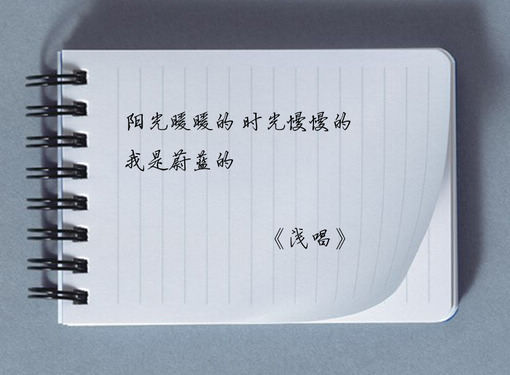 阳光暖暖的 时光慢慢的
我是蔚蓝的
《浅唱》